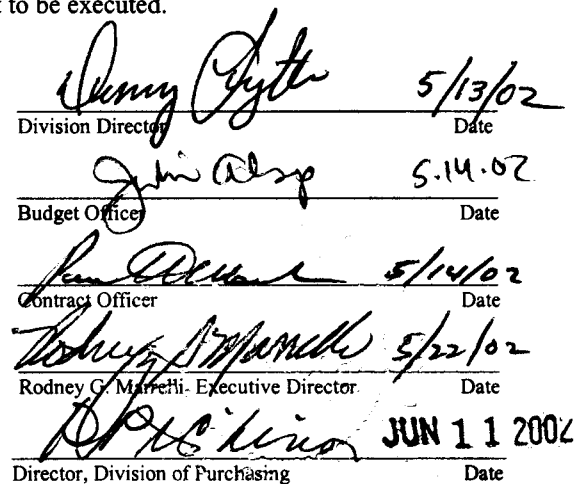 t to be executed.
5/13/02
Division Director Date
5.14.02
Budget Officer Date
5/14/02
Contract Officer Date
5/22/02
Rodney G. Marrelli- Executive Director Date
JUN 11 2002
Director, Division of Purchasing Date